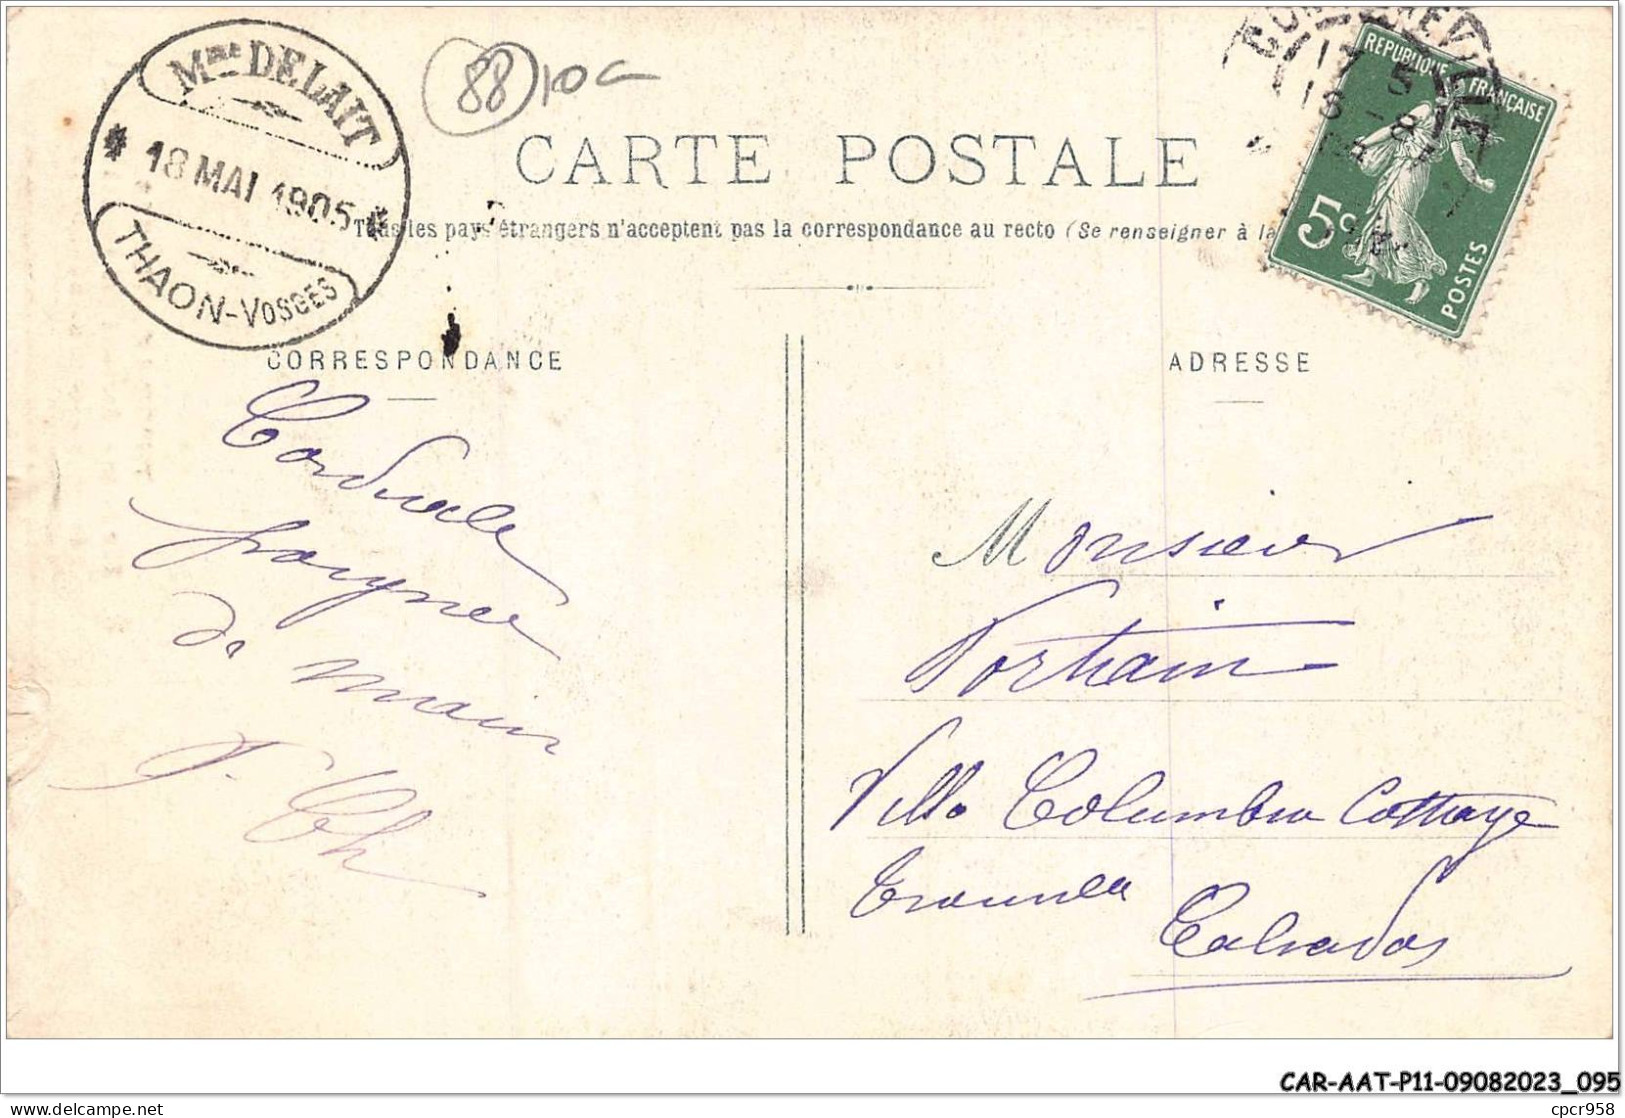 Mme DELAIT
* 18 MAI 1905 *
THAON-VOSGES
88 10 c
REPUBLIQUE FRANÇAISE
17 5
5c
POSTES
CARTE POSTALE
Tous les pays étrangers n'acceptent pas la correspondance au recto (Se renseigner à la
CORRESPONDANCE
Cordiale
poignée
de main
Ch
ADRESSE
Monsieur
Portrain
Villa Columbia Cottage
Trouville
Calvados
CAR-AAT-P11-09082023_095
delcampe.net
cpcr958